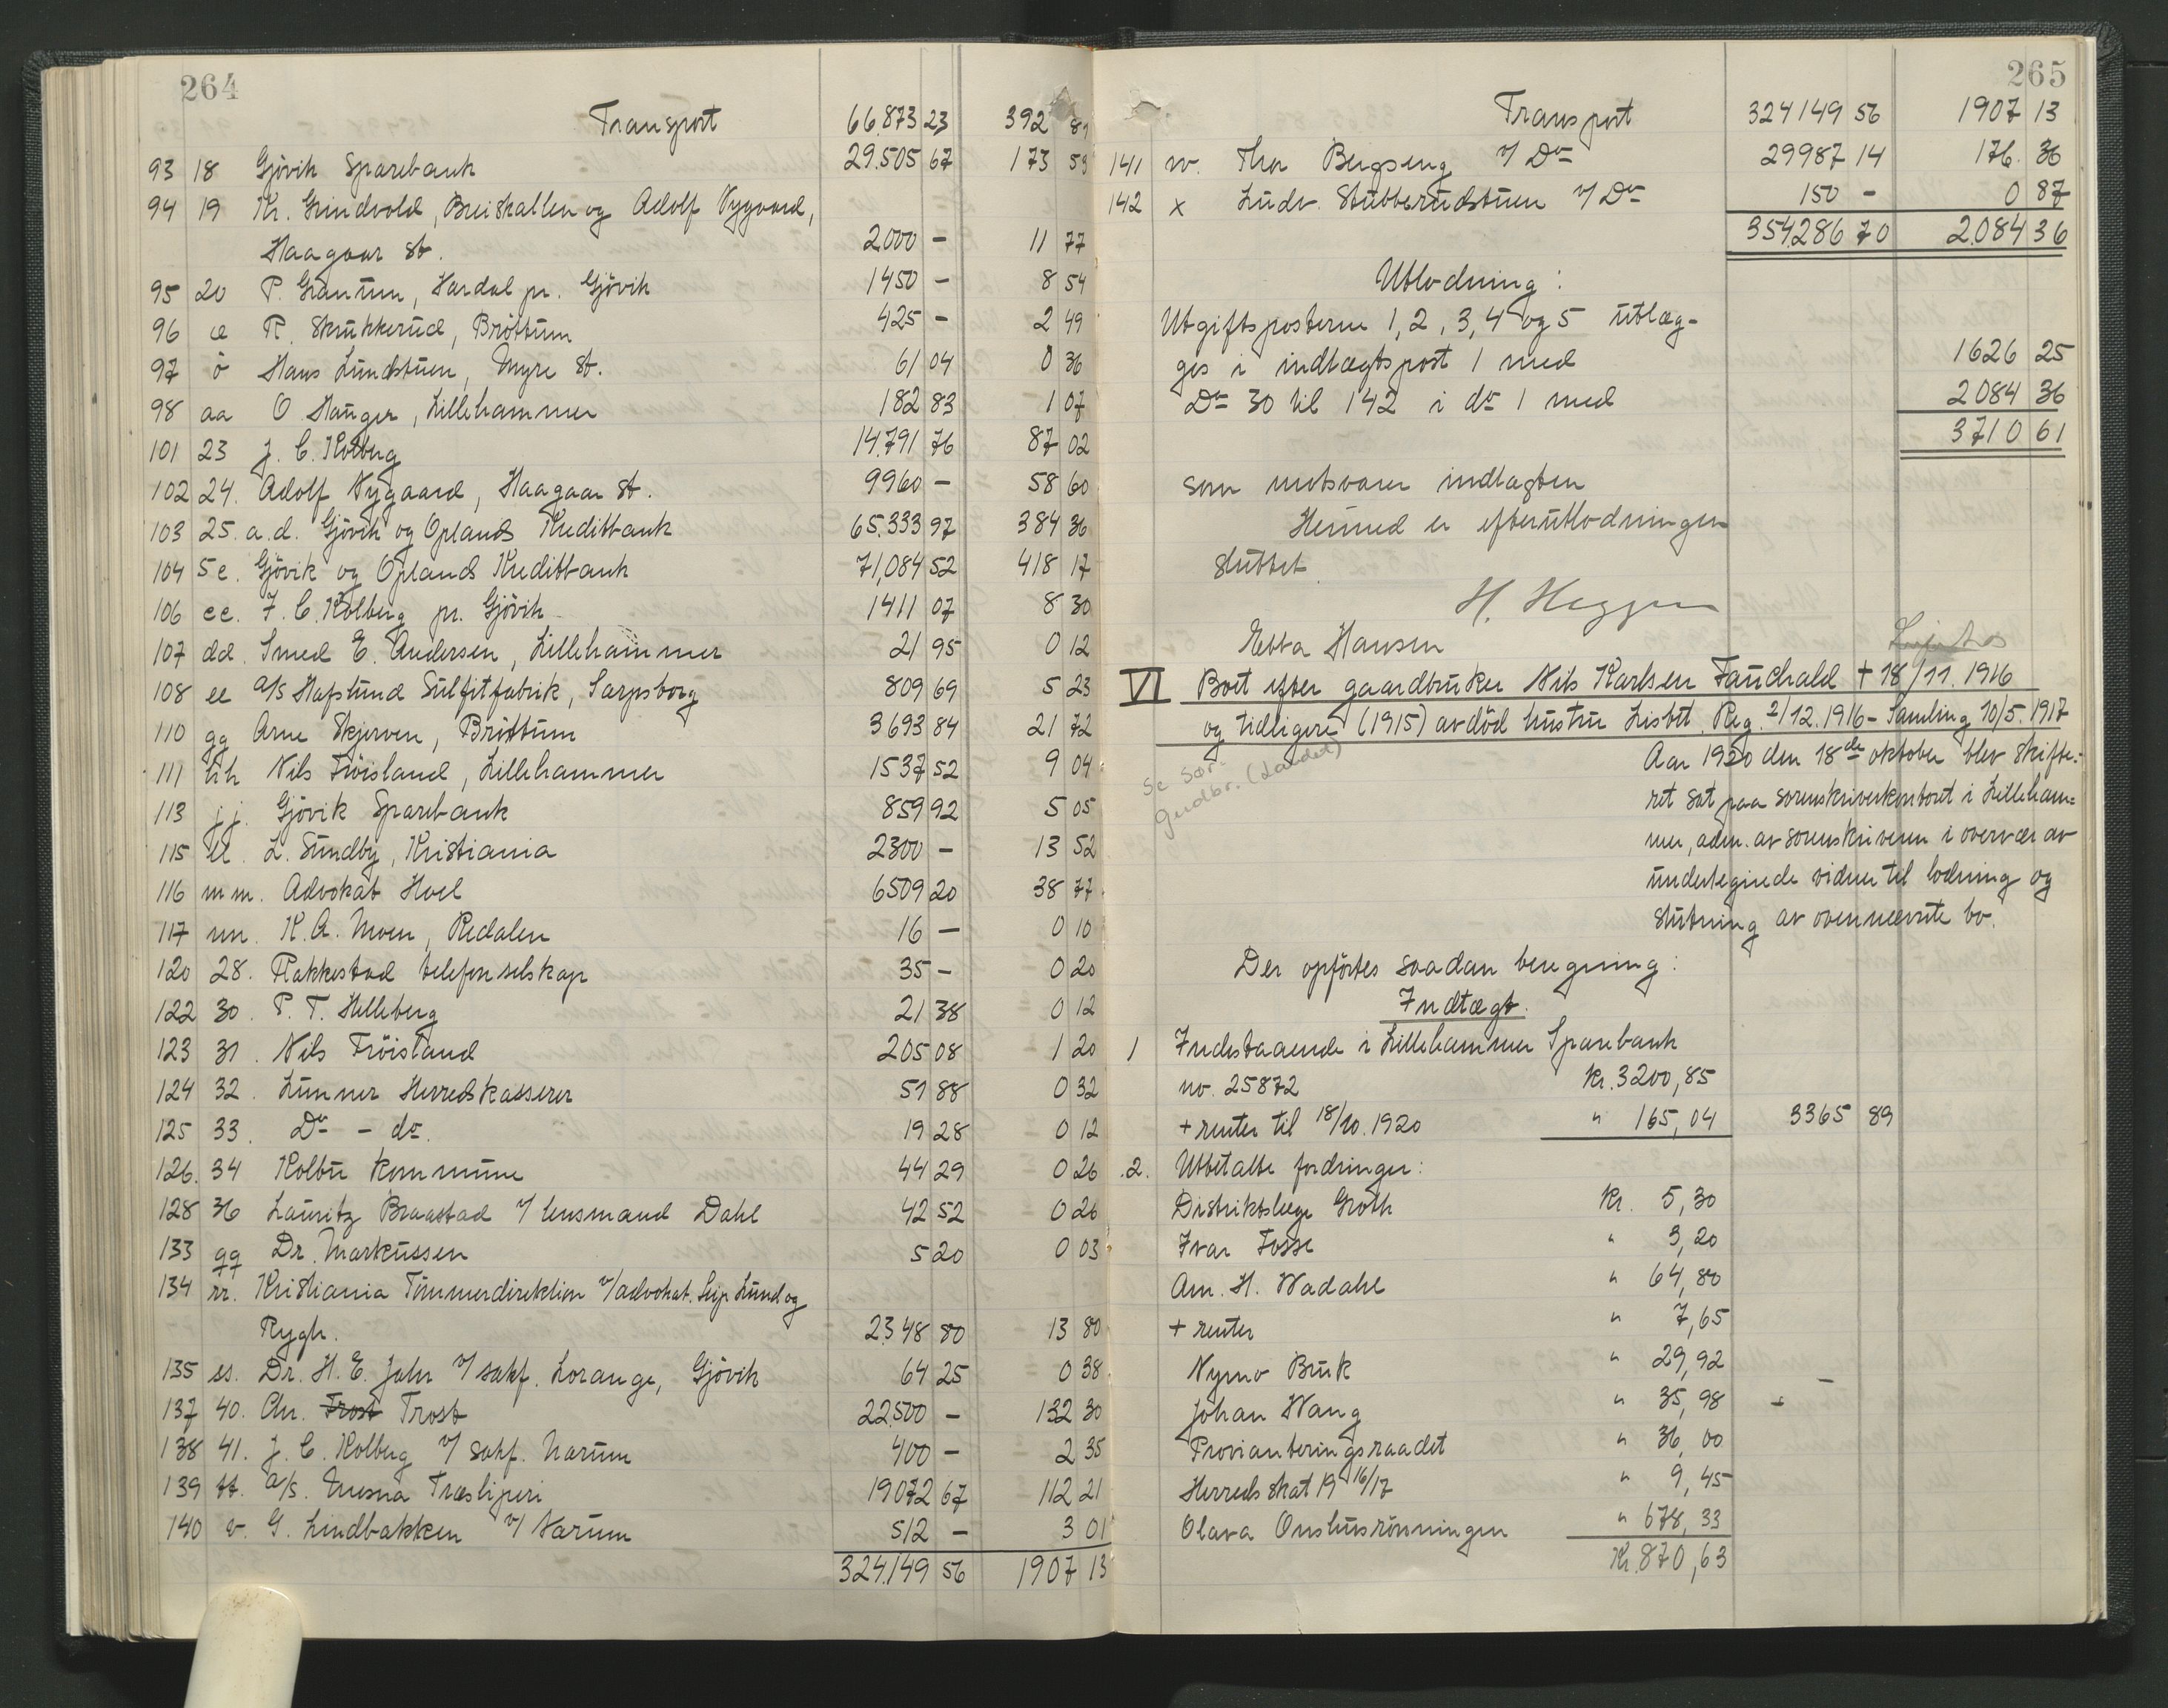 264
Transport 66.873 23 392 81
93 18 Gjövik Sparebank 29.505 67 173 59
94 19 Kr. Grindvold, Breiskallen og Adolf Nygaard,
Haagaar st. 2000 - 11 77
95 20 P. Granum, Hardal pr. Gjövik 1450 - 8 54
96 æ R. Skrukkerud, Bröttum 425 - 2 49
97 ö Hans Lundstuen, Myre st. 61 04 0 36
98 aa O Hauger, Lillehammer 182 83 1 07
101 23 J. C. Kolberg 14.791 76 87 02
102 24. Adolf Nygaard, Haagaar st. 9960 - 58 60
103 25. a.d. Gjövik og Oplands Kreditbank 65.333 97 384 36
104 5 e. Gjövik og Oplands Kreditbank 71,084 52 418 17
106 cc. J. C. Kolberg pr. Gjövik 1411 07 8 30
107 dd. Smed E. Andersen, Lillehammer 21 95 0 12
108 ee a/s Hafslund Sulfitfabrik, Sarpsborg 809 69 5 23
110 gg Arne Skjerven, Bröttum 3693 84 21 72
111 hh Nils Fröisland, Lillehammer 1537 52 9 04
113 jj. Gjövik Sparebank 859 92 5 05
115 ll. L. Sundby, Kristiania 2300 - 13 52
116 mm. Advokat Hoel 6509 20 38 77
117 nn. K. A. Moen, Redalen 16 - 0 10
120 28. Rakkestad telefonselskap 35 - 0 20
122 30. P. T. Helleberg 21 38 0 12
123 31. Nils Fröisland 205 08 1 20
124 32. Lunner Herredskasserer 51 88 0 32
125 33. Do - do. 19 28 0 12
126. 34 Kolbu kommune 44 29 0 26
128 36 Lauritz Braastad v/ lensmand Dahl 42 52 0 26
133 qq Dr. Markussen 5 20 0 03
134 rr. Kristiania Tömmerdirektion v/advokat. Seip Lund og
Rygh. 2348 80 13 80
135 ss. Dr. H. E. Jahr v/ sakf. Lorange, Gjövik 64 25 0 38
137 40. An. Trost Trost 22.500 - 132 30
138 41. J. C. Kolberg v/ sakf. Narum 400 - 2 35
139 tt. a/s. Mesna Træsliperi 19072 67 112 21
140 v. G. Lindbakken v/ Narum 512 - 3 01
324.149 56 1907 13
265
Transport 324149 56 1907 13
141 w. Thor Bergseng v/ Do 29987 14 176. 36
142 x Ludv. Stubberudstuen v/ Do 150 - 0 87
354.286 70 2.084 36
Utlodning:
Utgiftsposterne 1, 2, 3, 4 og 5 utlæg-
ges i indtægtspost 1 med 1626 25
Do 30 til 142 i do 1 med 2084 36
3710 61
som motsvarer indtægten
Hermed er efterutlodningen
sluttet.
H. Heggen
Ebba Hansen
VI Boet efter gaardbruker Nils Karlsen Fauchald + 18/11. 1916
og tidligere (1915) avdöd hustru Lisbet. Reg. 2/12. 1916 - Samling 10/5. 1917
Se Sør-
Gudbr. (Landet)
Aar 1920 den 18de oktober blev skifte-
ret sat paa sorenskriverkontoret i Lilleham-
mer, adm. av sorenskriveren i overvær av
undertegnede vidner til lodning og
slutning av ovennævnte bo.
Der opförtes saadan beregning:
Indtægt.
1 Indestaaende i Lillehammer Sparebank
no. 25872 Kr. 3200,85
+ renter til 18/10. 1920 " 165,04 3365 89
2. Utbetalte fordringer:
Distriktslæge Groth Kr. 5,30
Ivar Fosse " 3,20
Am. H. Wadahl " 64,80
+ renter " 7,65
Nymo Bruk " 29,92
Johan Wang " 35,98
Provianteringsraadet " 36,00
Herredsskat 19 16/17 " 9,45
Olava Onslusrönningen " 678,33
Kr. 870,63